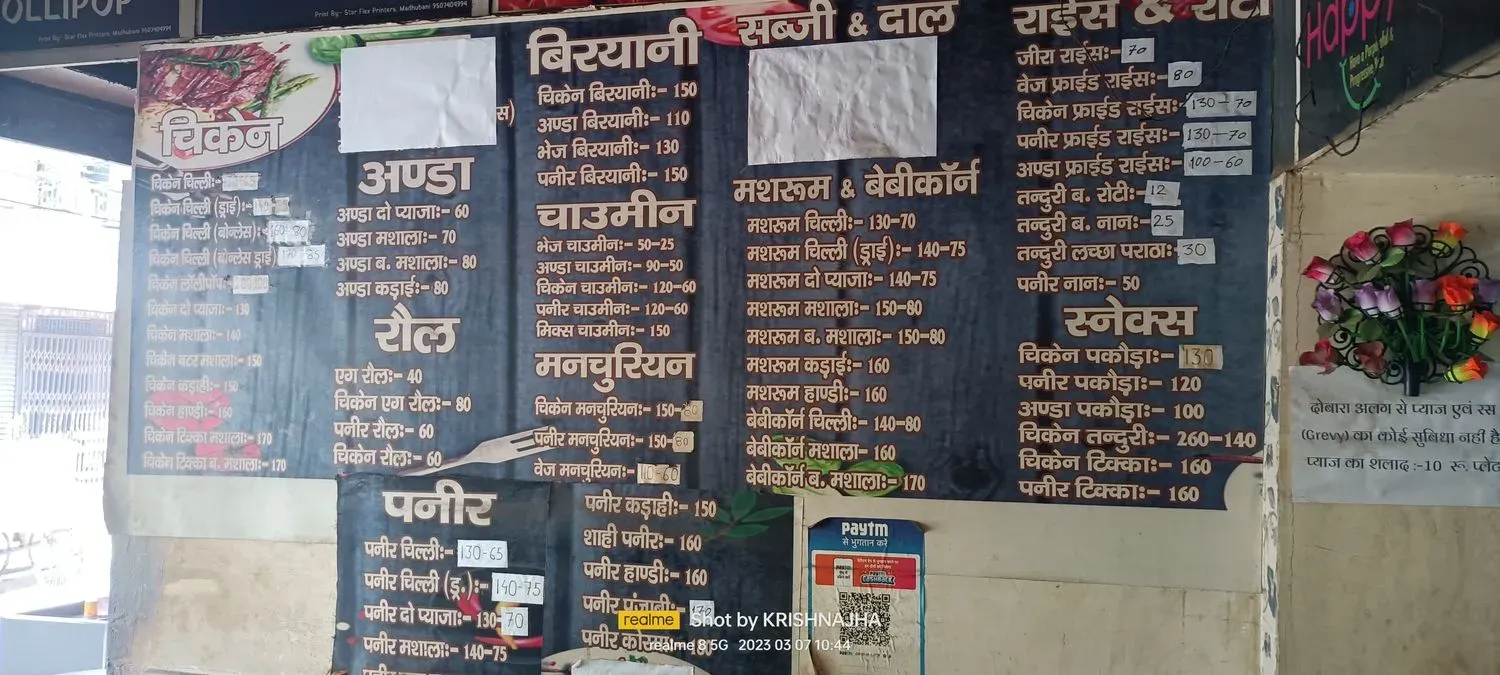 OLLIPOP
Print By:- Star Flex Printers, Madhubani 9507404994
Print By:- Star Flex Printers, Madhubani 9507404994
चिकेन
चिकेन चिल्ली:-
चिकेन चिल्ली (ड्राई)
चिकेन चिल्ली (बोनलेस):- 80
चिकेन चिल्ली (बोनलेस ड्राई) 85
चिकेन लॉलीपॉप:-
चिकेन दो प्याजा:- 130
चिकेन मशाला:- 140
चिकेन बटर मशाला:- 150
चिकेन कड़ाही:- 150
चिकेन हाण्डी:- 160
चिकेन टिक्का मशाला:- 170
चिकेन टिक्का ब. मशाला:- 170
स)
अण्डा
अण्डा दो प्याजा:- 60
अण्डा मशाला:- 70
अण्डा ब. मशाला:- 80
अण्डा कड़ाई:- 80
रौल
एग रौल:- 40
चिकेन एग रौल:- 80
पनीर रौल:- 60
चिकेन रौल:- 60
बिरयानी
चिकेन बिरयानी:- 150
अण्डा बिरयानी:- 110
भेज बिरयानी:- 130
पनीर बिरयानी:- 150
चाउमीन
भेज चाउमीन:- 50-25
अण्डा चाउमीन:- 90-50
चिकेन चाउमीन:- 120-60
पनीर चाउमीन:- 120-60
मिक्स चाउमीन:- 150
मनचुरियन
चिकेन मनचुरियन:- 150-80
पनीर मनचुरियन:- 150-80
वेज मनचुरियन:- 110-60
सब्जी & दाल
मशरूम & बेबीकॉर्न
मशरूम चिल्ली:- 130-70
मशरूम चिल्ली (ड्राई):- 140-75
मशरूम दो प्याजा:- 140-75
मशरूम मशाला:- 150-80
मशरूम ब. मशाला:- 150-80
मशरूम कड़ाई:- 160
मशरूम हाण्डी:- 160
बेबीकॉर्न चिल्ली:- 140-80
बेबीकॉर्न मशाला- 160
बेबीकॉर्न ब. मशाला:- 170
राईस & रोटी
जीरा राईस:- 70
वेज फ्राईड राईस:- 80
चिकेन फ्राईड राईस:- 130-70
पनीर फ्राईड राईस:- 130-70
अण्डा फ्राईड राईस:- 100-60
तन्दुरी ब. रोटी:- 12
तन्दुरी ब. नान:- 25
तन्दुरी लच्छा पराठा:- 30
पनीर नान:- 50
स्नेक्स
चिकेन पकौड़ा:- 130
पनीर पकौड़ा:- 120
अण्डा पकौड़ा:- 100
चिकेन तन्दुरी:- 260-140
चिकेन टिक्का:- 160
पनीर टिक्का:- 160
पनीर
पनीर चिल्ली:- 130-65
पनीर चिल्ली (ड्र.):- 140-75
पनीर दो प्याजा:- 130-70
पनीर मशाला:- 140-75
पनीर कड़ाही:- 150
शाही पनीर:- 160
पनीर हाण्डी:- 160
पनीर पंजाबी:- 170
पनीर कोरमा:- 180
paytm
से भुगतान करें
Happy
दोबारा अलग से प्याज एवं रस
(Grevy) का कोई सुबिधा नही है
प्याज का शलाद :-10 रू. प्लेट
realme Shot by KRISHNAJHA
realme 8 5G 2023 03 07 10:44